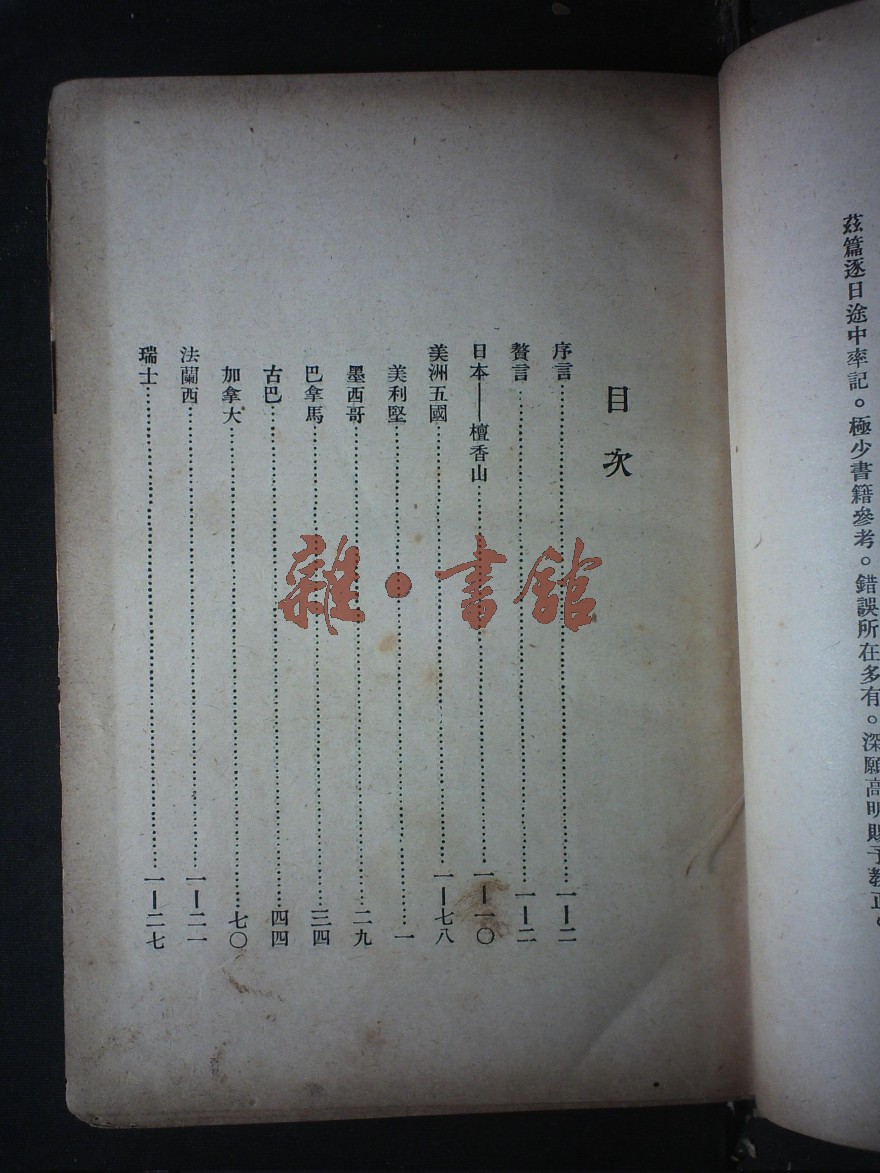 茲篇逐日途中率記。極少書籍參考。錯誤所在多有。深願高明賜予教正。
目次
序言……一—二
贅言……一—二
日本——檀香山……一—一〇
美洲五國……一—七八
美利堅……一
墨西哥……二九
巴拿馬……三四
古巴……四四
加拿大……七〇
法蘭西……一—二一
瑞士……一—二七
雜·書館